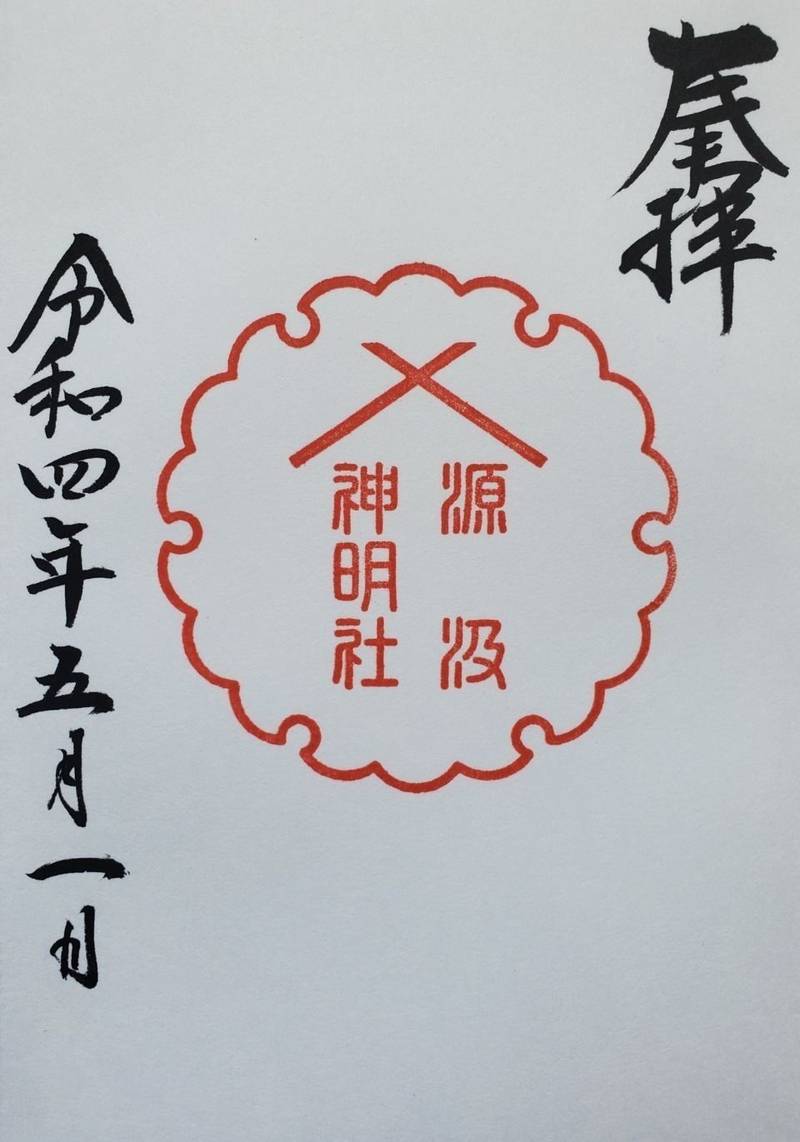 奉拝
源汲
神明社
令和四年五月一日